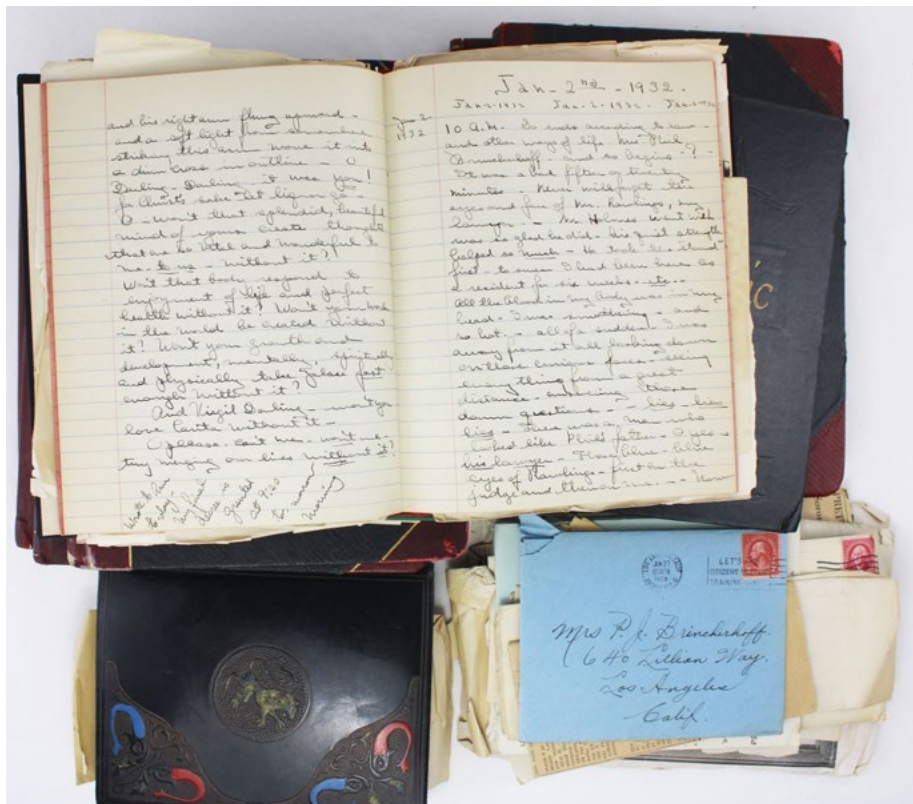 and his right arm flung upward -
and a soft light from somewhere
striking this arm wove it into
a dim cross in outline - O
Darling - Darling - it was you!
for Christ's sake - let liquor go -
O - won't that splendid, beautiful
mind of yours create thoughts
that are so vital and wonderful to
me - to us - without it?!
Won't that body respond to
enjoyment of life and perfect
health without it? Won't your work
in the world be created without
it? Won't your growth and
development, mentally, spiritually
and physically take place fast
enough without it?
And Virgil Darling - won't you
love without it -
O please - can't we - won't we -
try merging our lives without it?
Wrote to
today -
my final
is
granted
at 9:20
morning
Jan - 2nd - 1932.
Jan-2-1932 Jan-2-1932. Jan-2-1932
Jan 2
1932
10 A.M. So ends according to law -
and other ways of life Mrs Phil
Brinckerhoff - and so begins - ?
It was a bad fifteen or twenty
minutes - Never will forget the
eyes and face of Mr. Rawlings, my
lawyer - Mr Holmes went with
was so glad he did - his quiet strength
helped so much - He took the stand
first - to swear I had been here as
a resident for six weeks - etc -
All the blood in my body was in my
head - I was smothering - and
so hot - all of a sudden I was
away from it all looking down
on those curious faces - seeing
everything from a great
distance - answering those
damn questions - - lies - lies
lies - there was a man who
looked like Phil's father - O yes -
his lawyer - Those blue - blue
eyes of Rawlings - first on the
judge and then on me - - Now
IC
JUN 27
LET'S
CITIZENS
TRAINING
Mrs P. J. Brinckerhoff
640 Lillian Way.
Los Angeles
Calif.